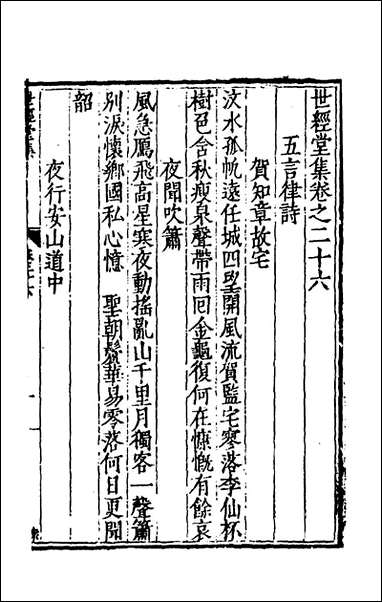 世經堂集卷之二十六
五言律詩
賀知章故宅
汶水孤帆遠任城四望開風流賀監宅寥落李仙杯
樹色含秋瘦泉聲帶雨回金龜復何在慷慨有餘哀
夜聞吹簫
風急鴈飛高星寒夜動搖亂山千里月獨客一聲簫
別淚懷鄉國私心憶　聖朝鬢華易零落何日更聞
韶
夜行安山道中